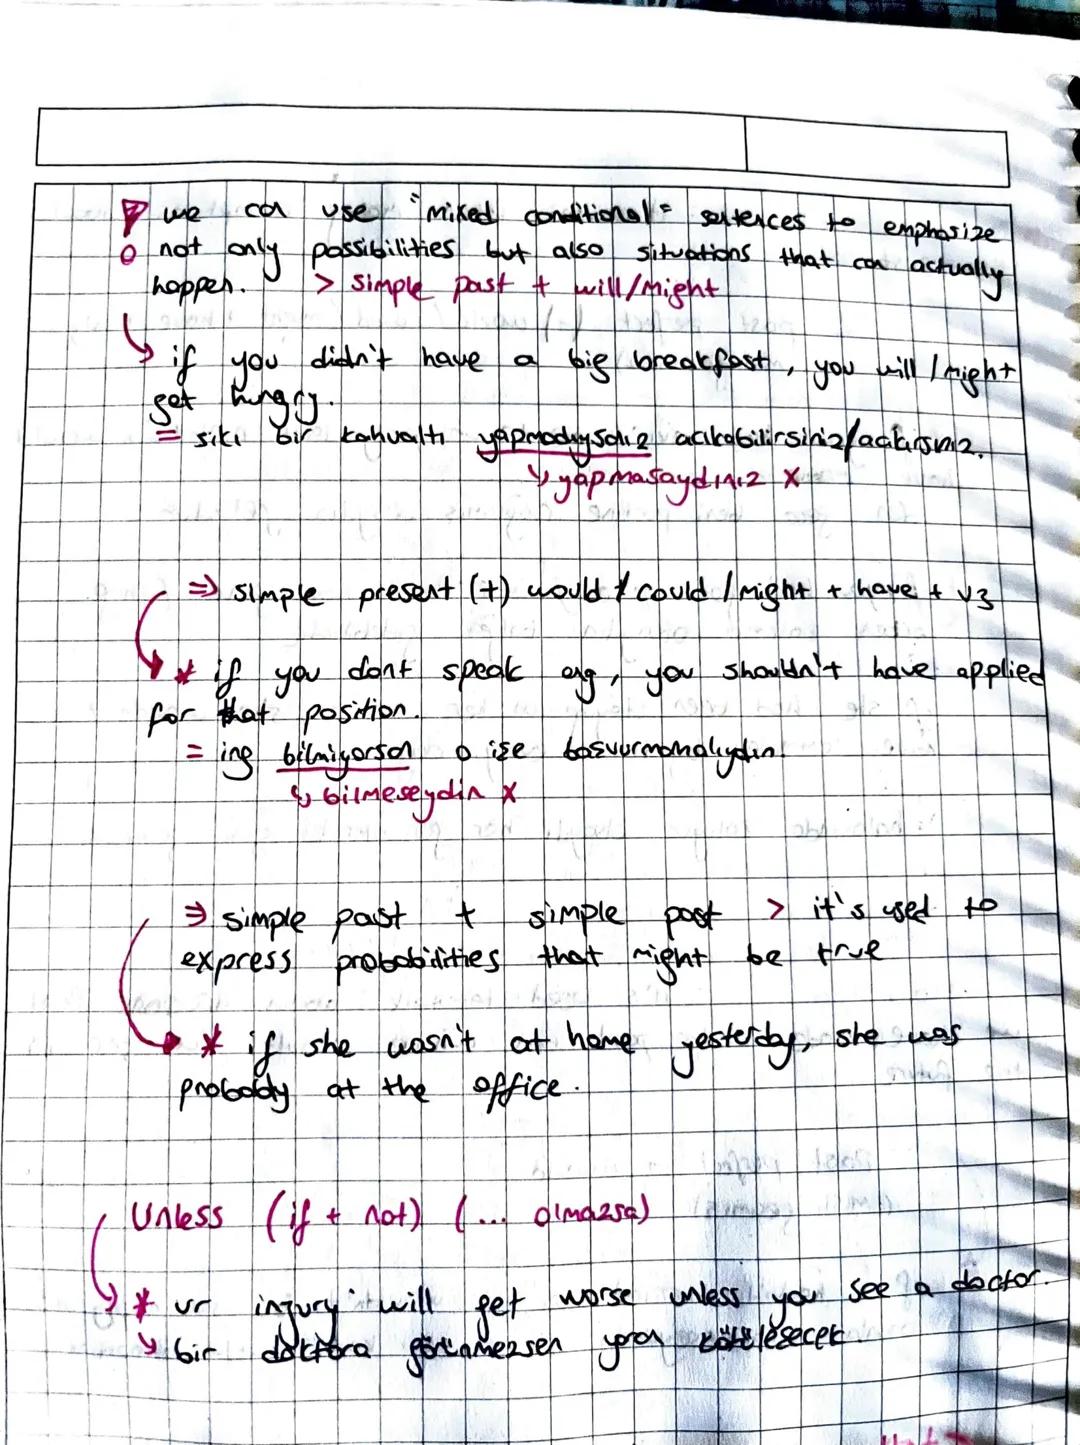 we can use "mixed conditional" sentences to emphasize
not only possibilities but also situations that can actually
happen. > simple past + will/might
if you didn't have a big breakfast, you will / might
get hungry.
= sıkı bir kahvaltı yapmadıysanız acıkabilirsiniz/acıkırsınız.
↳ yapmasaydınız X
⇒ simple present (+) would / could / might + have + V3
* if you dont speak eng, you shouldn't have applied
for that position.
= ing bilmiyorsan o işe başvurmamalıydın.
↳ bilmeseydin X
⇒ simple past + simple past > it's used to
express probabilities that might be true
* if she wasn't at home yesterday, she was
probably at the office.
Unless (if + not) (... olmazsa)
* ur injury will get worse unless you see a doctor.
↳ bir doktora görünmezsen yaran kötüleşecek